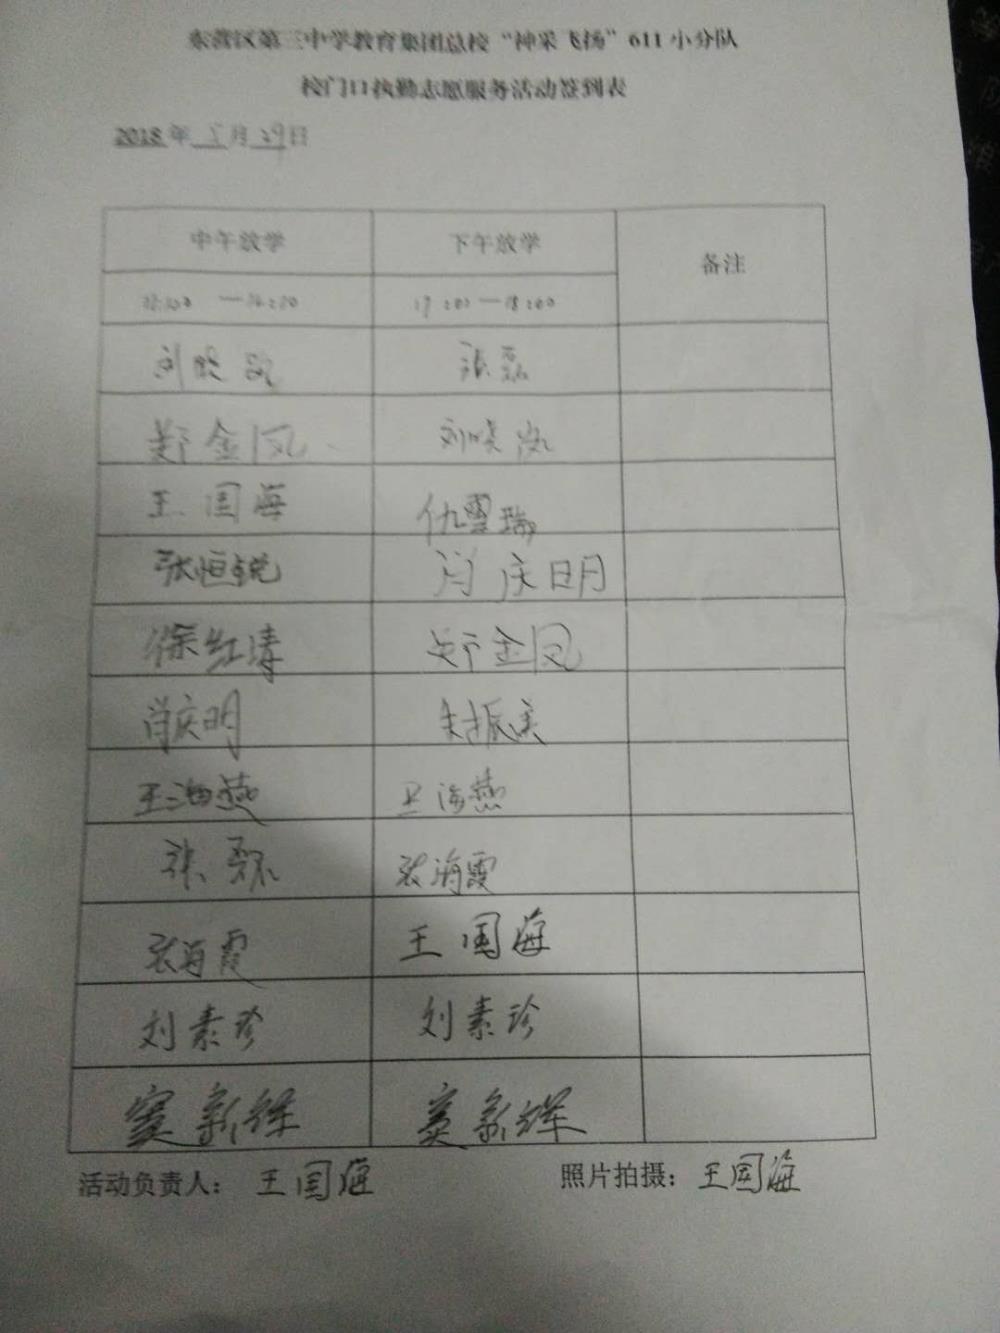 东营区第三中学教育集团总校“神采飞扬”611小分队
校门口执勤志愿服务活动签到表
2018年5月29日
中午放学 下午放学 备注
17:00—18:00
刘晓岚 张磊
郑金凤 刘晓岚
王国海 仇雪瑞
张恒锐 肖庆明
徐红清 郑金凤
肖庆明 朱振美
王海燕 王海燕
张磊 张海霞
张海霞 王国海
刘素珍 刘素珍
窦新辉 窦新辉
活动负责人：王国海 照片拍摄：王国海